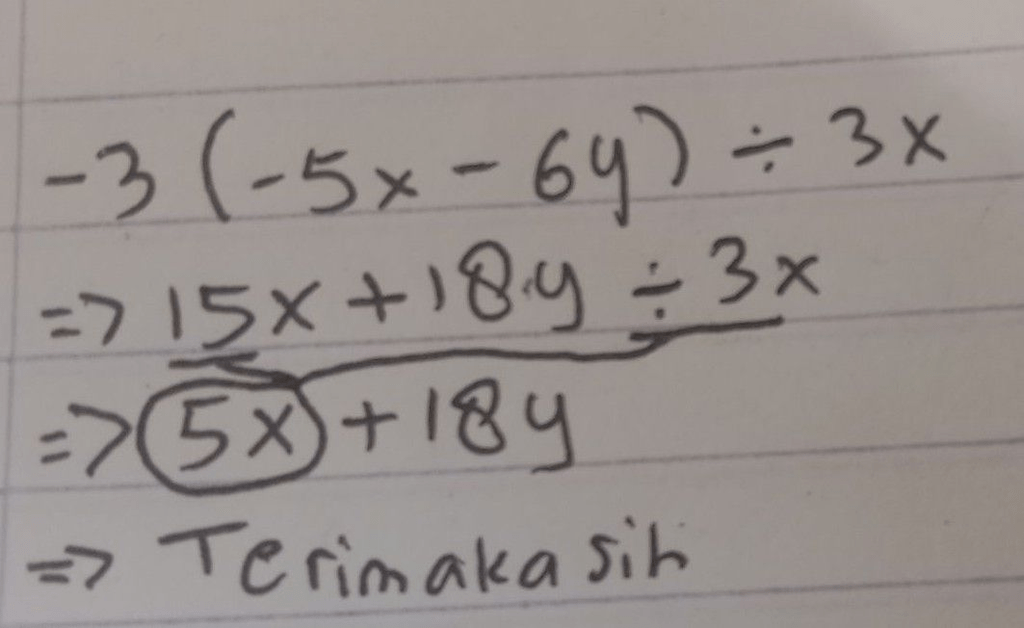 -3 (-5x - 6y) ÷ 3x
=> 15x + 18y ÷ 3x
=> 5x + 18y
=> Terimakasih